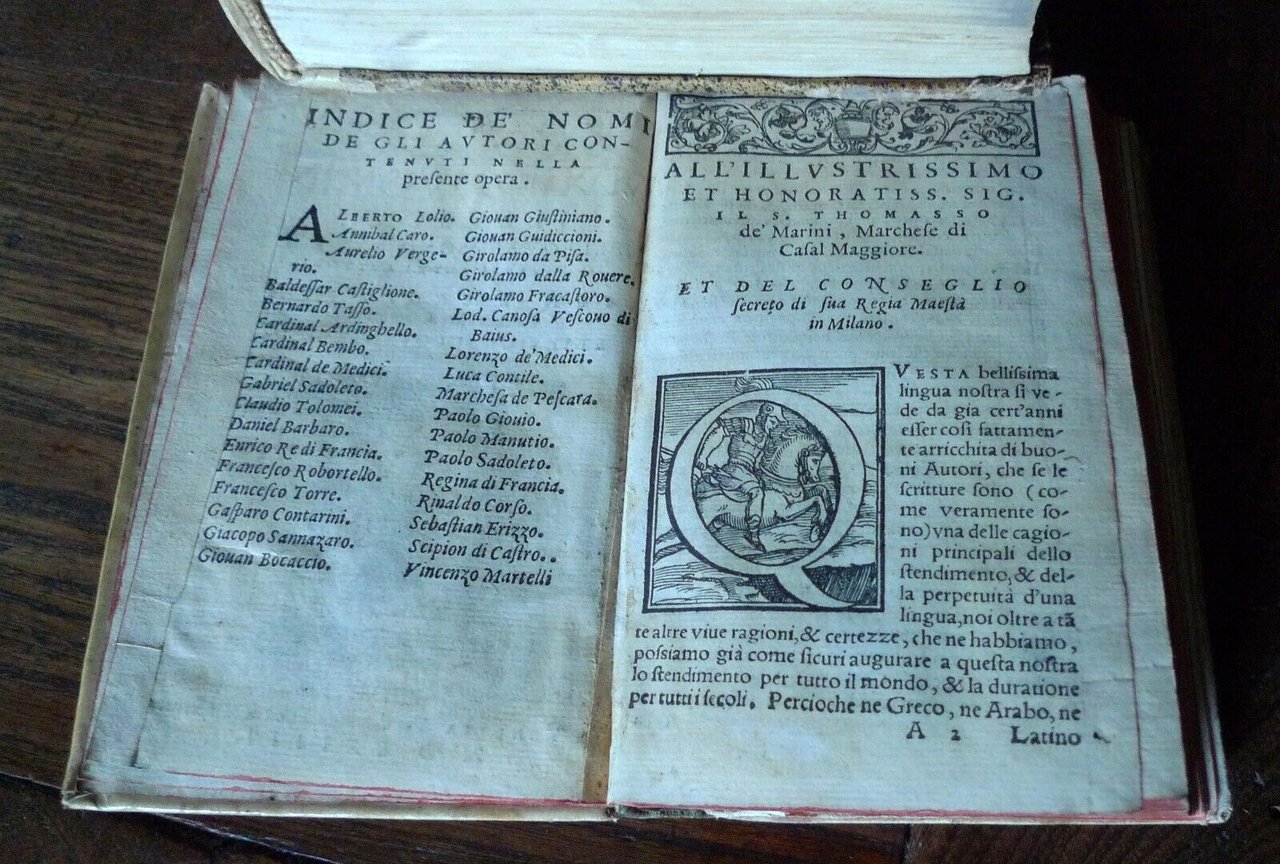 INDICE DE' NOMI
DE GLI AVTORI CON-
TENVTI NELLA
preſente opera.
ALBERTO Lolio.
Annibal Caro.
Aurelio Verge-
rio.
Baldeſſar Caſtiglione.
Bernardo Taſſo.
Cardinal Ardinghello.
Cardinal Bembo.
Cardinal de Medici.
Gabriel Sadoleto.
Claudio Tolomei.
Daniel Barbaro.
Enrico Re di Francia.
Franceſco Robortello.
Franceſco Torre.
Gaſparo Contarini.
Giacopo Sannazaro.
Giouan Bocaccio.
Giouan Giuſtiniano.
Giouan Guidiccioni.
Girolamo da Piſa.
Girolamo dalla Rouere.
Girolamo Fracaſtoro.
Lod. Canoſa Veſcouo di
Baius.
Lorenzo de' Medici.
Luca Contile.
Marcheſa de Peſcara.
Paolo Giouio.
Paolo Manutio.
Paolo Sadoleto.
Regina di Francia.
Rinaldo Corſo.
Sebaſtian Erizzo.
Scipion di Caſtro..
Vincenzo Martelli
ALL'ILLVSTRISSIMO
ET HONORATISS. SIG.
IL S. THOMASSO
de' Marini, Marcheſe di
Caſal Maggiore.
ET DEL CONSEGLIO
ſecreto di ſua Regia Maeſtà
in Milano.
QVESTA belliſſima
lingua noſtra ſi ve-
de da gia cert'anni
eſſer coſi fattamen-
te arricchita di buo-
ni Autori, che ſe le
ſcritture ſono (co-
me veramente ſo-
no) vna delle cagio-
ni principali dello
ſtendimento, & del-
la perpetuità d'una
lingua, noi oltre a tã
te altre viue ragioni, & certezze, che ne habbiamo,
poſsiamo già come ſicuri augurare a queſta noſtra
lo ſtendimento per tutto il mondo, & la duratione
per tutti i ſecoli. Percioche ne Greco, ne Arabo, ne
A 2 Latino